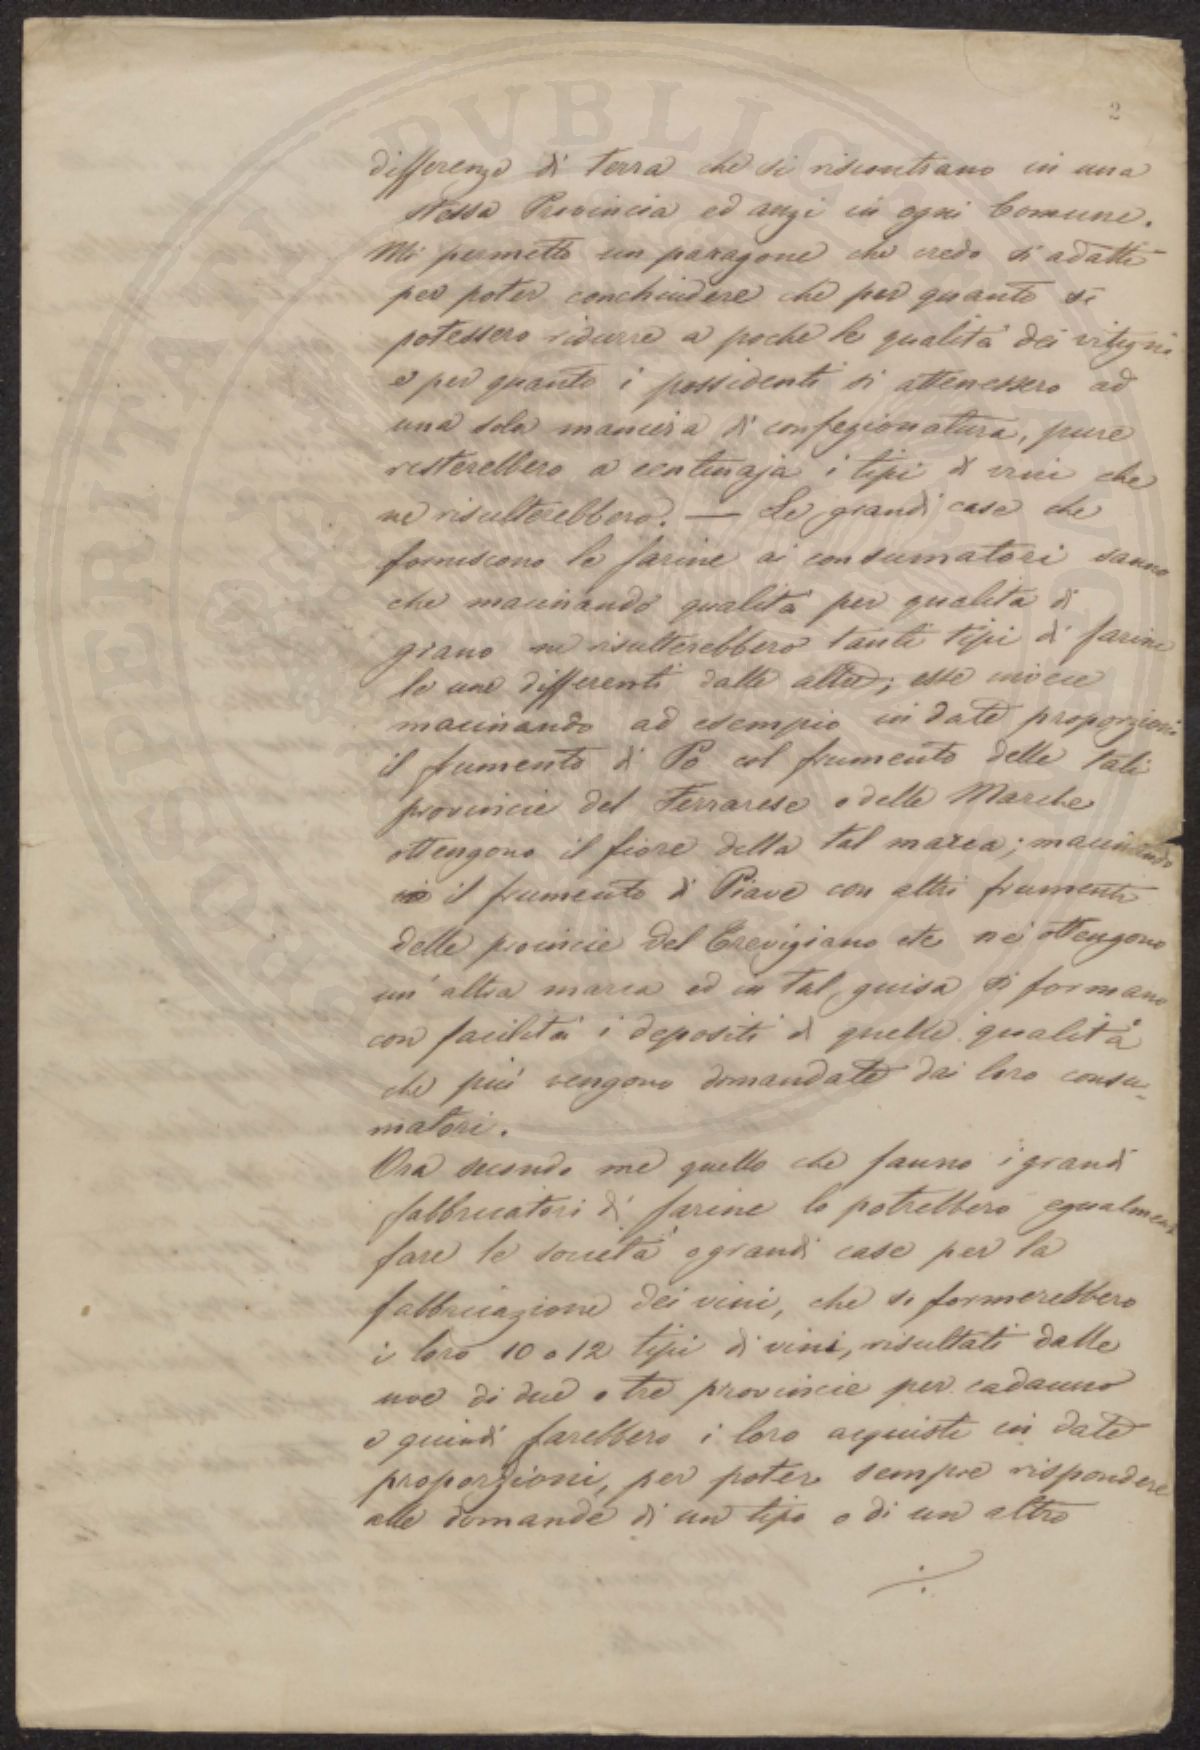 2
differenze di terra che si riscontrano in una
stessa Provincia ed anzi in ogni Comune.
Mi permetto un paragone che credo si adatti
per poter conchiudere che per quanto si
potessero ridurre a poche le qualità dei vitigni
e per quanto i possidenti si attenessero ad
una sola maniera di confezionatura, pure
resterebbero a centinaja i tipi di vini che
ne risulterebbero. — Le grandi case che
forniscono le farine ai consumatori sanno
che macinando qualità per qualità di
grano ne risulterebbero tanti tipi di farine
le une differenti dalle altre; esse invece
macinando ad esempio in date proporzioni
il frumento di Po col frumento delle tali
provincie del Ferrarese o delle Marche
ottengono il fiore della tal marca; macinando
il frumento di Piave con altri frumenti
delle provincie del Trevigiano etc ne ottengono
un' altra marca ed in tal guisa si formano
con facilità i depositi di quelle qualità
che più vengono domandate dai loro consu-
matori.
Ora secondo me quello che fanno i grandi
fabbricatori di farine lo potrebbero egualmente
fare le società o grandi case per la
fabbricazione dei vini, che si formerebbero
i loro 10 o 12 tipi di vini, risultati dalle
uve di due o tre provincie per cadauno
e quindi farebbero i loro acquisti in date
proporzioni, per poter sempre rispondere
alle domande di un tipo o di un altro
./.
PROSPERITATI PVBLICAE